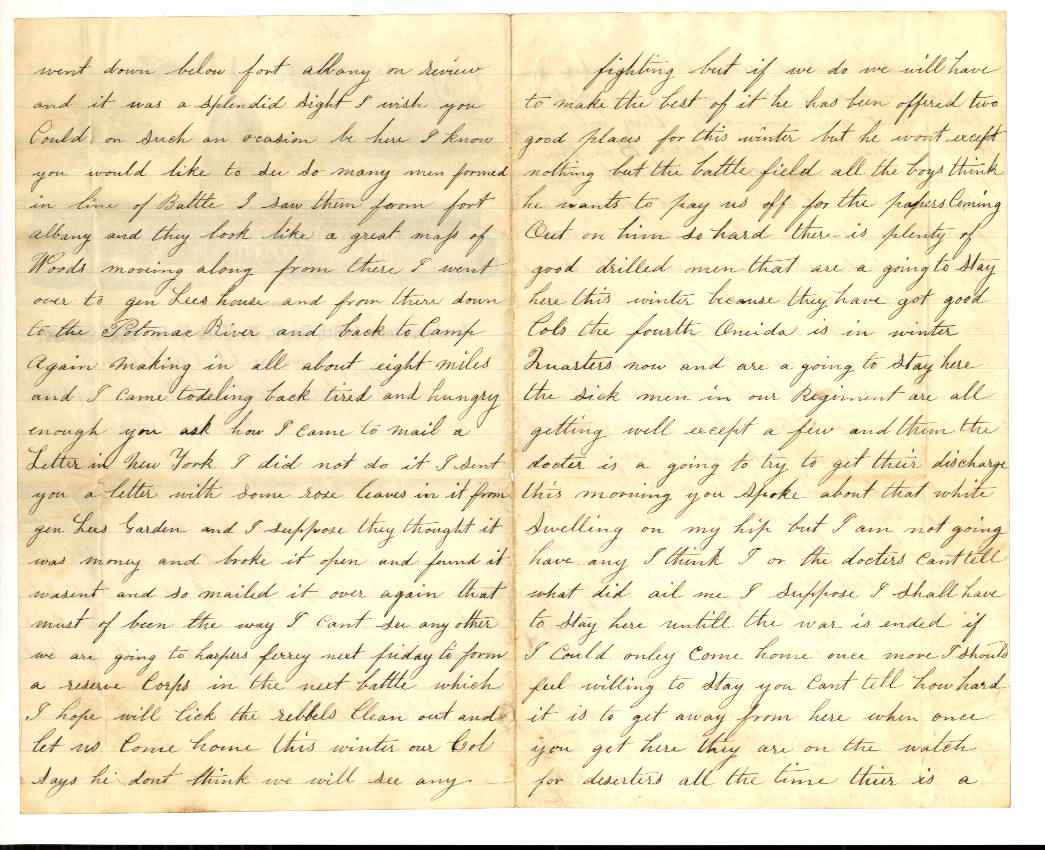 went down below fort albany on review
and it was a splendid sight I wish you
Could on such an ocasion be here I know
you would like to see so many men formed
in line of Battle I saw them from fort
albany and they look like a great mass of
Woods moveing along from there I went
over to gen Lees house and from there down
to the Potomac River and back to Camp
Again making in all about eight miles
and I came todeling back tired and hungry
enough you ask how I came to mail a
Letter in New York I did not do it I sent
you a letter with some rose leaves in it from
gen Lees Garden and I suppose they thought it
was money and broke it open and found it
wasent and so mailed it over again that
must of been the way I cant see any other
we are going to harpers ferrey next friday to form
a reserve Corps in the next battle which
I hope will lick the rebbels Clean out and
let us Come home this winter our Col
says he dont think we will see any
fighting but if we do we will have
to make the best of it he has been offered two
good places for this winter but he wont except
nothing but the battle field all the boys think
he wants to pay us off for the papers Coming
Out on him so hard there is plenty of
good drilled men that are a going to stay
here this winter because they have got good
Cols the fourth Oneida is in winter
Quarters now and are a going to stay here
the sick men in our Regiment are all
getting well except a few and them the
docter is a going to try to get their discharge
this morning you spoke about that white
Swelling on my hip but I am not going
have any I think I or the docters cant tell
what did ail me I suppose I shall have
to stay here untill the war is ended if
I could onley come home once more I should
feel willing to stay you cant tell how hard
it is to get away from here when once
you get here they are on the watch
for deserters all the time thier is a